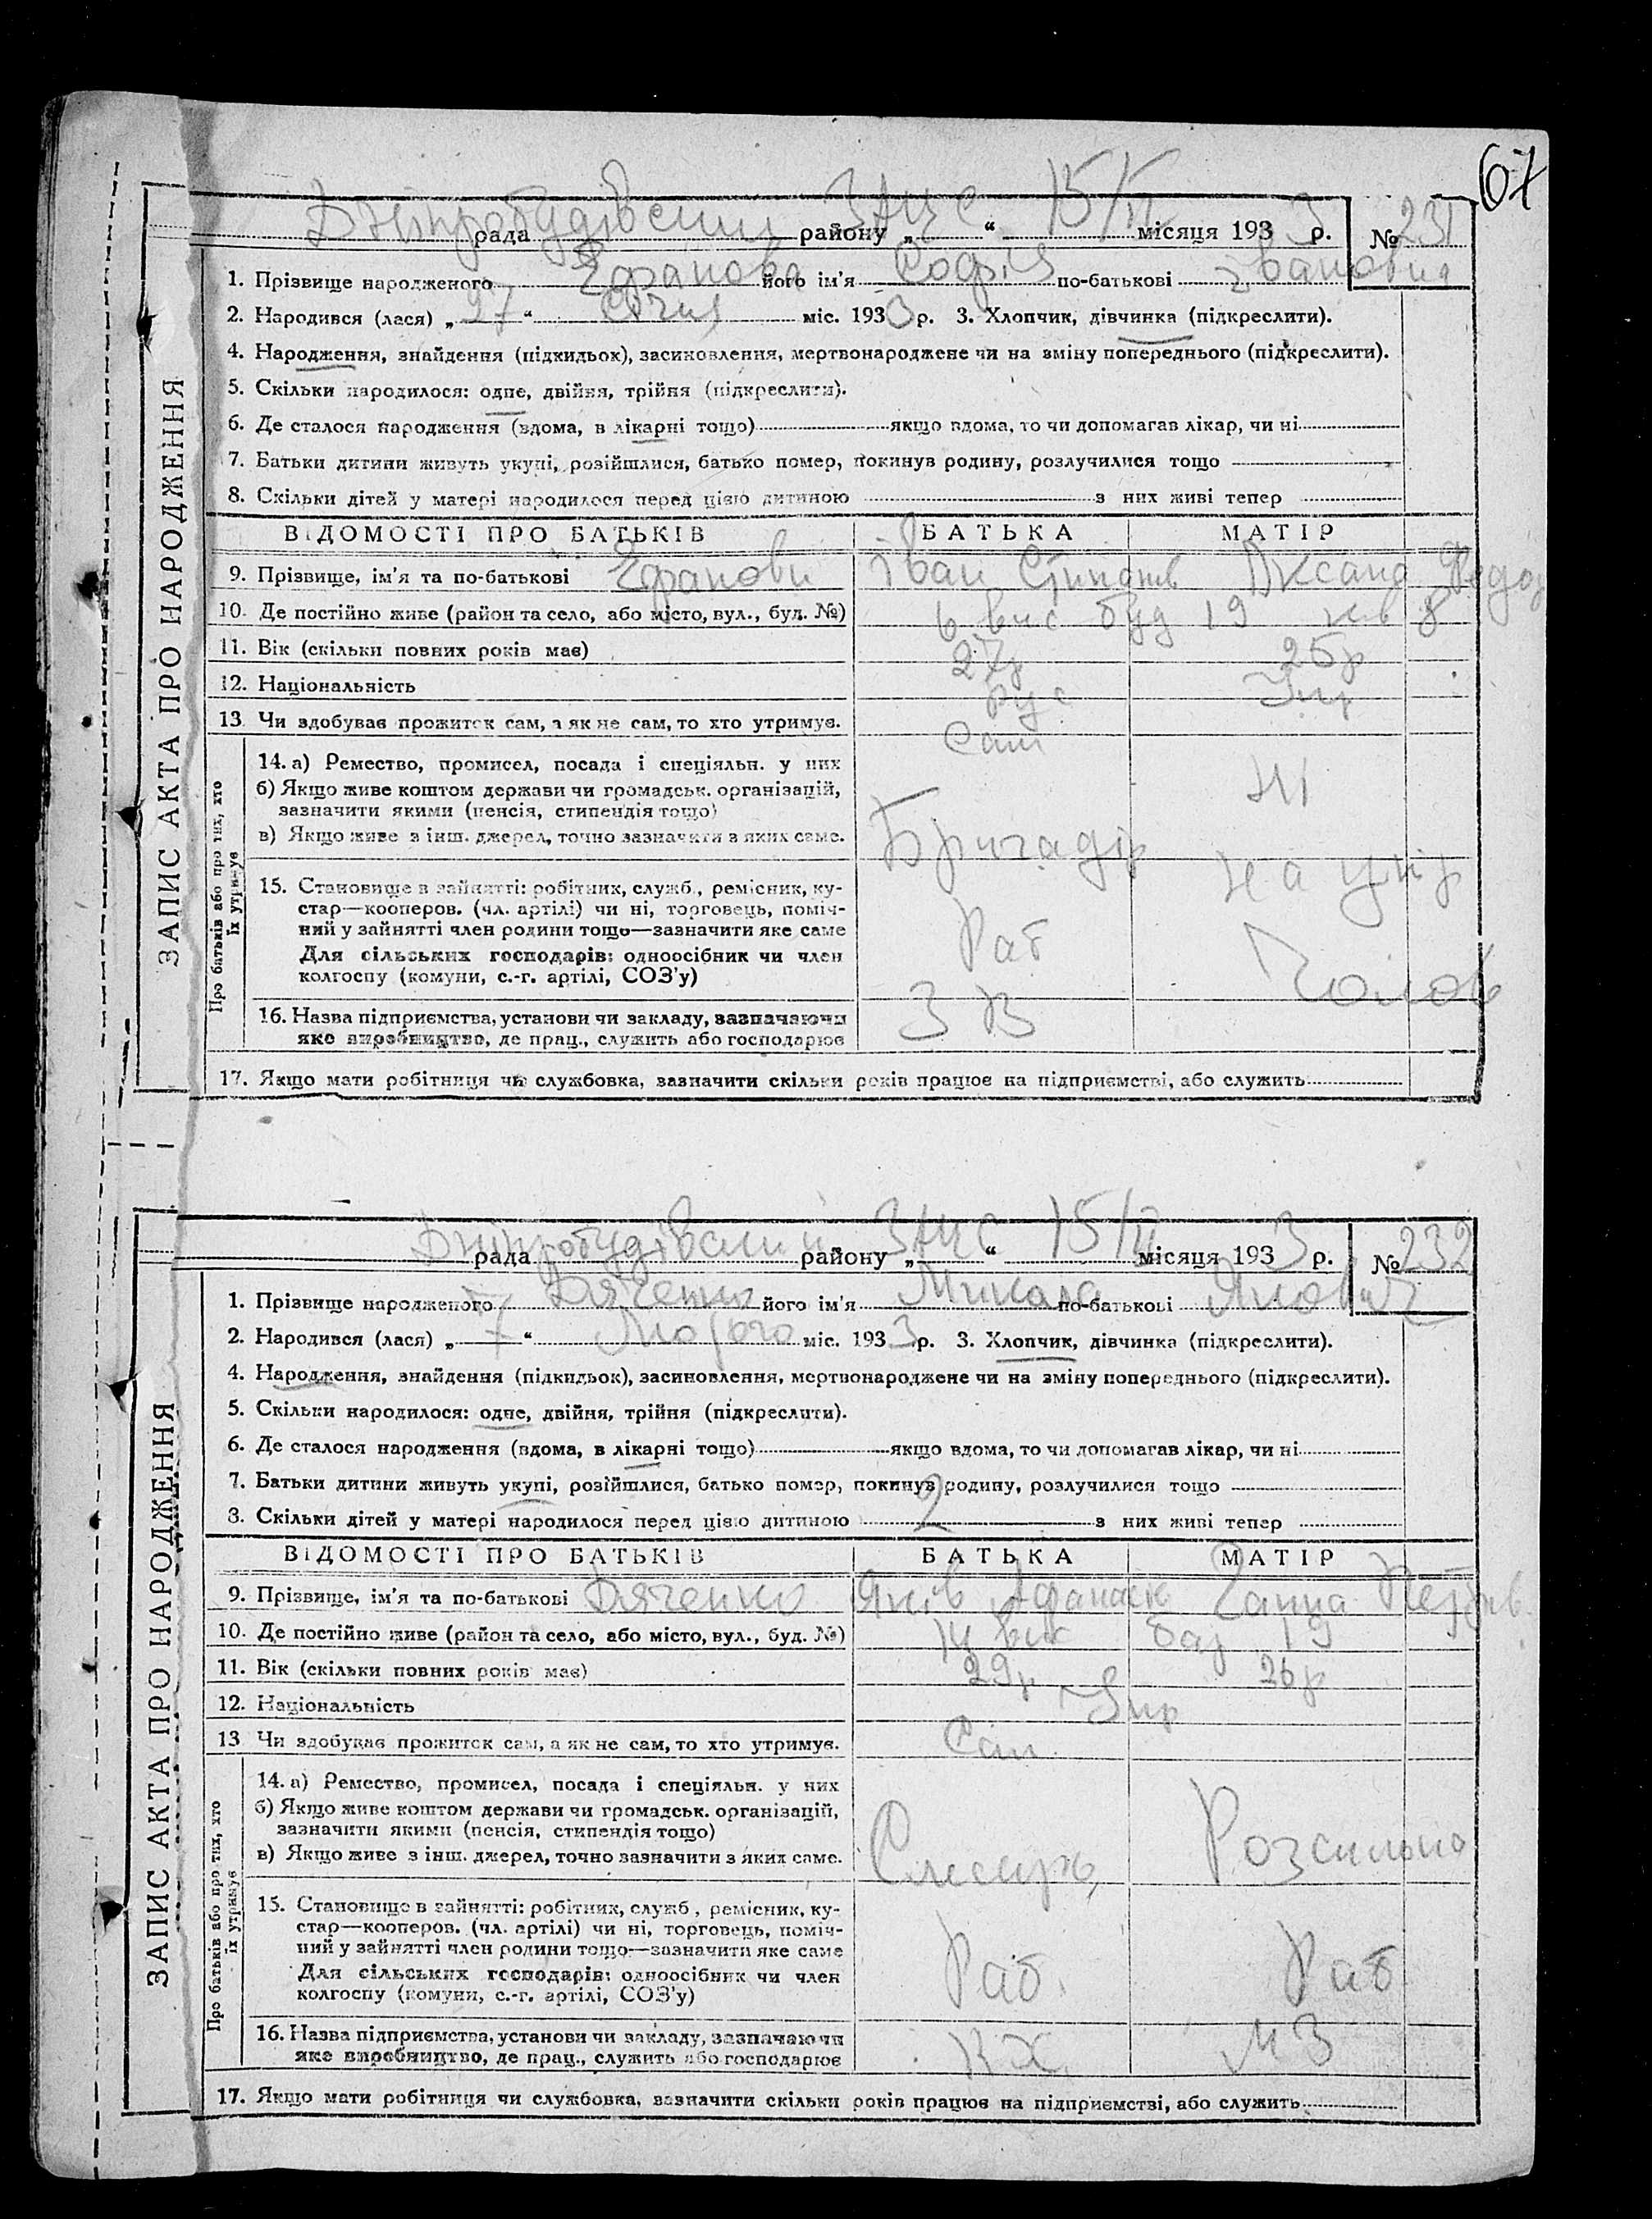 67
Дніпробудівський ЗАЦС 15/ІІ
рада району „ “ місяця 1933 р. № 231
1. Прізвище народженого Єфанова його ім'я Софія по-батькові Івановна
2. Народився (лася) „27“ Січня міс. 1933 р. 3. Хлопчик, дівчинка (підкреслити).
4. Народження, знайдення (підкидьок), засиновлення, мертвонароджене чи на зміну попереднього (підкреслити).
5. Скільки народилося: одне, двійня, трійня (підкреслити).
6. Де сталося народження (вдома, в лікарні тощо) якщо вдома, то чи допомагав лікар, чи ні
7. Батьки дитини живуть укупі, розійшлися, батько помер, покинув родину, розлучилися тощо
8. Скільки дітей у матері народилося перед цією дитиною з них живі тепер
ВІДОМОСТІ ПРО БАТЬКІВ БАТЬКА МАТІР
9. Прізвище, ім'я та по-батькові Єфанови Іван Оксана Федор
10. Де постійно живе (район та село, або місто, вул., буд. №) 6 вис буд 19 кв 8
11. Вік (скільки повних років має) 27р 25р
12. Національність Рус Укр
13. Чи здобував прожиток сам, а як не сам, то хто утримує. Сам
Про батьків або про тих, хто їх утримує
14. а) Ремество, промисел, посада і спеціяльн. у них
б) Якщо живе коштом держави чи громадськ. організацій,
зазначити якими (пенсія, стипендія тощо)
в) Якщо живе з інш. джерел, точно зазначити з яких саме.
Бригадір Ні
15. Становище в зайнятті: робітник, служб., ремісник, ку-
стар—кооперов. (чл. артілі) чи ні, торговець, поміч-
ний у зайнятті член родини тощо—зазначити яке саме
Для сільських господарів: одноосібник чи член
колгоспу (комуни, с.-г. артілі, СОЗ'у)
Раб на утр
Чолов
16. Назва підприємства, установи чи закладу, зазначаючи
яке виробництво, де прац., служить або господарює
З В
17. Якщо мати робітниця чи службовка, зазначити скільки років працює на підприємстві, або служить
ЗАПИС АКТА ПРО НАРОДЖЕННЯ
Дніпробудівський ЗАЦС 15/ІІ
рада району „ “ місяця 1933 р. № 232
1. Прізвище народженого Дяченко його ім'я Микола по-батькові Якович
2. Народився (лася) „7“ Лютого міс. 1933 р. 3. Хлопчик, дівчинка (підкреслити).
4. Народження, знайдення (підкидьок), засиновлення, мертвонароджене чи на зміну попереднього (підкреслити).
5. Скільки народилося: одне, двійня, трійня (підкреслити).
6. Де сталося народження (вдома, в лікарні тощо) якщо вдома, то чи допомагав лікар, чи ні
7. Батьки дитини живуть укупі, розійшлися, батько помер, покинув родину, розлучилися тощо
8. Скільки дітей у матері народилося перед цією дитиною 2 з них живі тепер
ВІДОМОСТІ ПРО БАТЬКІВ БАТЬКА МАТІР
9. Прізвище, ім'я та по-батькові Дяченко Яків Афанасів Ганна Петрів.
10. Де постійно живе (район та село, або місто, вул., буд. №) 14 вис бар 19
11. Вік (скільки повних років має) 29р 26р
12. Національність Укр
13 Чи здобував прожиток сам, а як не сам, то хто утримує. Сам
Про батьків або про тих, хто їх утримує
14. а) Ремество, промисел, посада і спеціяльн. у них
б) Якщо живе коштом держави чи громадськ. організацій,
зазначити якими (пенсія, стипендія тощо)
в) Якщо живе з інш. джерел, точно зазначити з яких саме.
Слесарь Розсильна
15. Становище в зайнятті: робітник, служб., ремісник, ку-
стар—кооперов. (чл. артілі) чи ні, торговець, поміч-
ний у зайнятті член родини тощо—зазначити яке саме
Для сільських господарів: одноосібник чи член
колгоспу (комуни, с.-г. артілі, СОЗ'у)
Раб. Раб
16. Назва підприємства, установи чи закладу, зазначаючи
яке виробництво, де прац., служить або господарює
КХ МЗ
17. Якщо мати робітниця чи службовка, зазначити скільки років працює на підприємстві, або служить
ЗАПИС АКТА ПРО НАРОДЖЕННЯ